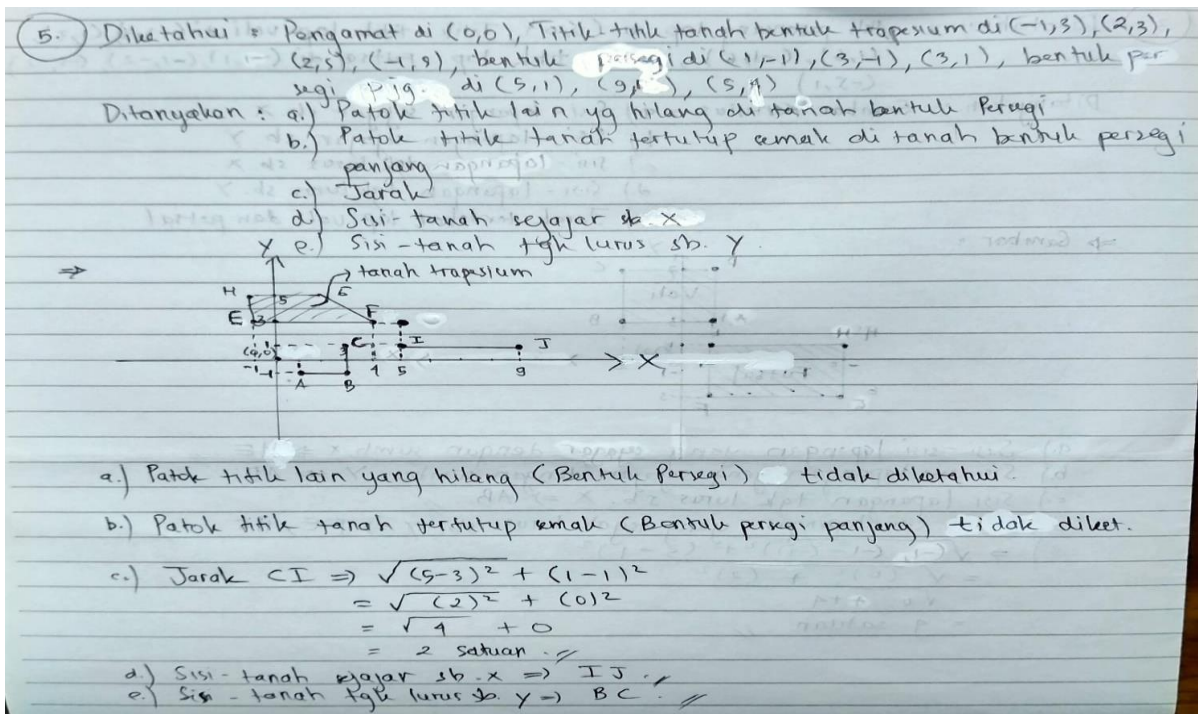 5. Diketahui : Pengamat di (0,0), Titik-titik tanah bentuk trapesium di (-1,3), (2,3),
(2,5), (-1,5), bentuk persegi di (1,-1), (3,-1), (3,1), bentuk per
segi pjg. di (5,1), (9,1), (5,4)
Ditanyakan : a.) Patok titik lain yg hilang di tanah bentuk Persegi
b.) Patok titik tanah tertutup semak di tanah bentuk persegi
panjang
c.) Jarak
d.) Sisi-tanah sejajar sb. X
e.) Sisi-tanah tgk lurus sb. Y.
Y
⇒
tanah trapesium
H 5 G
E 3 F
(0,0) 1 C I J
-1 -1 3 4 5 9 X
A B
a.) Patok titik lain yang hilang (Bentuk Persegi) tidak diketahui.
b.) Patok titik tanah tertutup semak (Bentuk persegi panjang) tidak diket.
c.) Jarak CI ⇒ √(5-3)² + (1-1)²
= √(2)² + (0)²
= √4 + 0
= 2 satuan.
d.) Sisi-tanah sejajar sb. x ⇒ IJ.
e.) Sisi-tanah tgk lurus sb. y ⇒ BC.